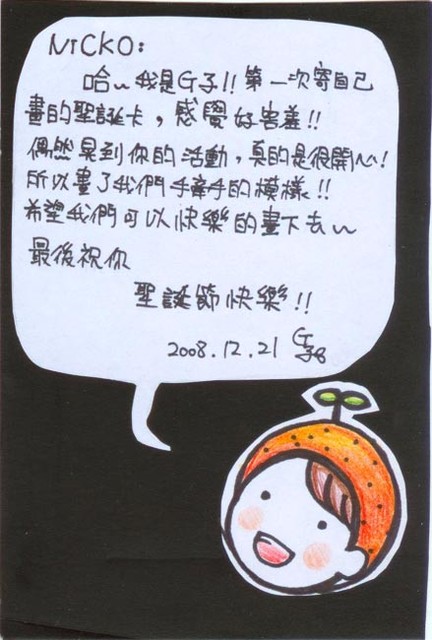 NICKO:
哈~我是G子!!第一次寄自己
畫的聖誕卡,感覺好害羞!!
偶然晃到你的活動,真的是很開心!
所以畫了我們手牽手的模樣!!
希望我們可以快樂的畫下去~
最後祝你
聖誕節快樂!!
2008.12.21 G子